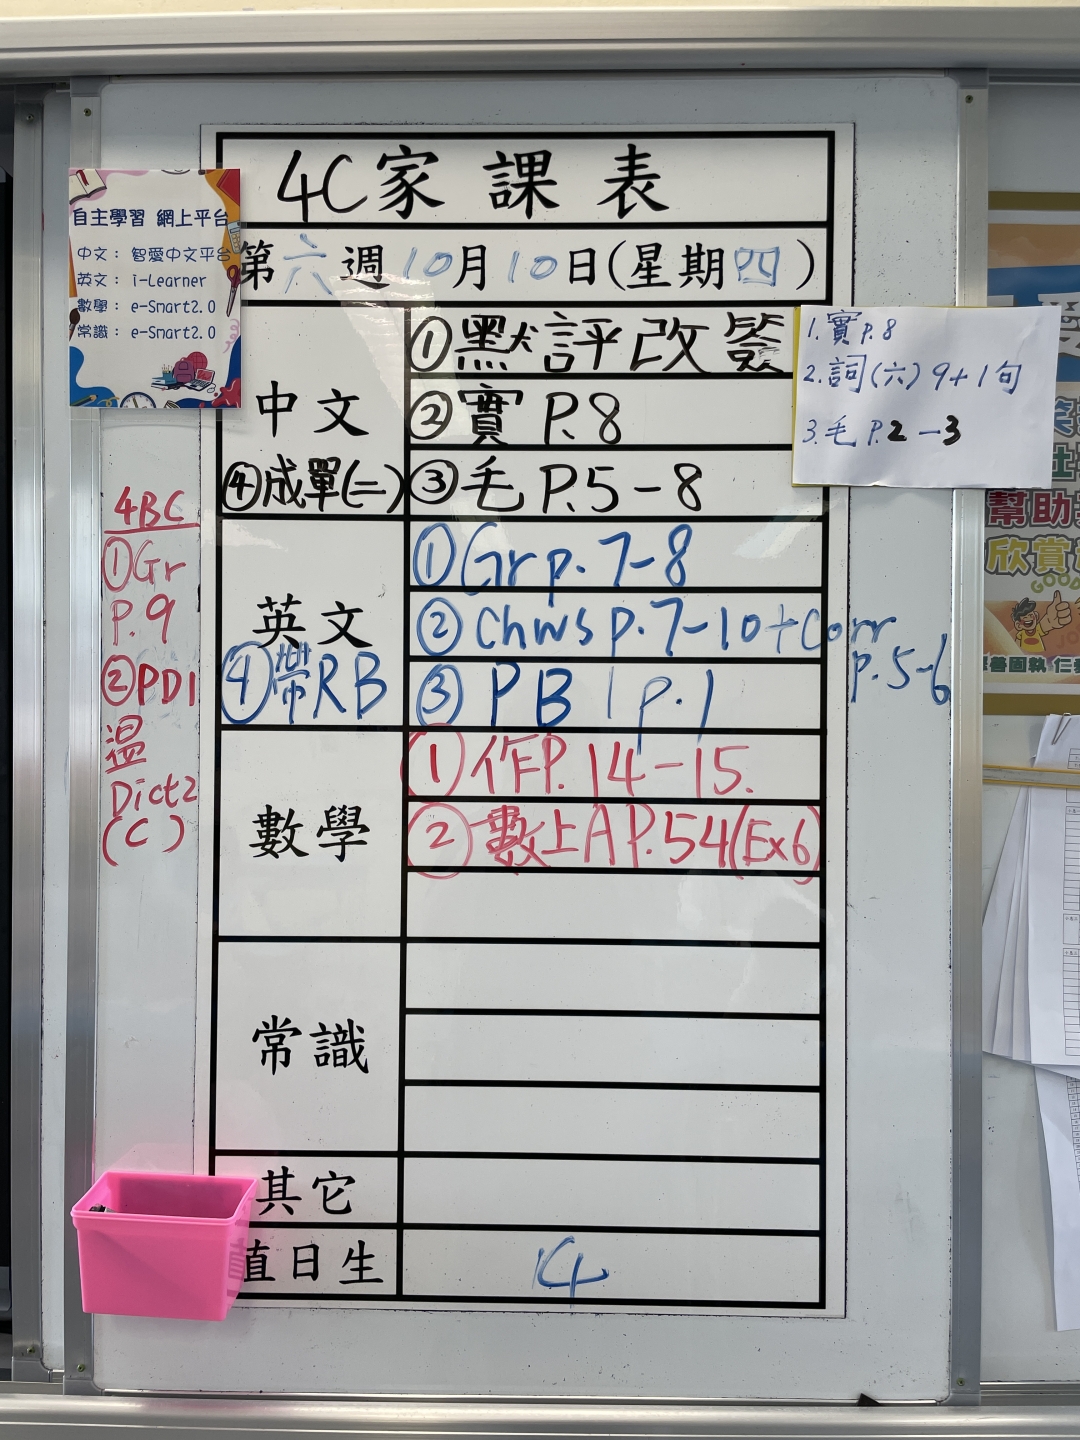 4C家課表
第六週10月10日(星期四)
自主學習 網上平台
中文： 智愛中文平台
英文： i-Learner
數學： e-Smart2.0
常識： e-Smart2.0
中文
①默評改簽
②實 P.8
③毛 P.5-8
④成單(二)
1.實P.8
2.詞(六)9+1句
3.毛 P.2-3
英文
①Gr p.7-8
②Chws p.7-10+Corr
p.5-6
③PB 1 p.1
④帶RB
4BC
①Gr
P.9
②PD1
溫
Dict2
(C)
數學
①作P.14-15.
②數上A P.54(Ex6)
常識
其它
值日生
14
幫助
欣賞
GOOD